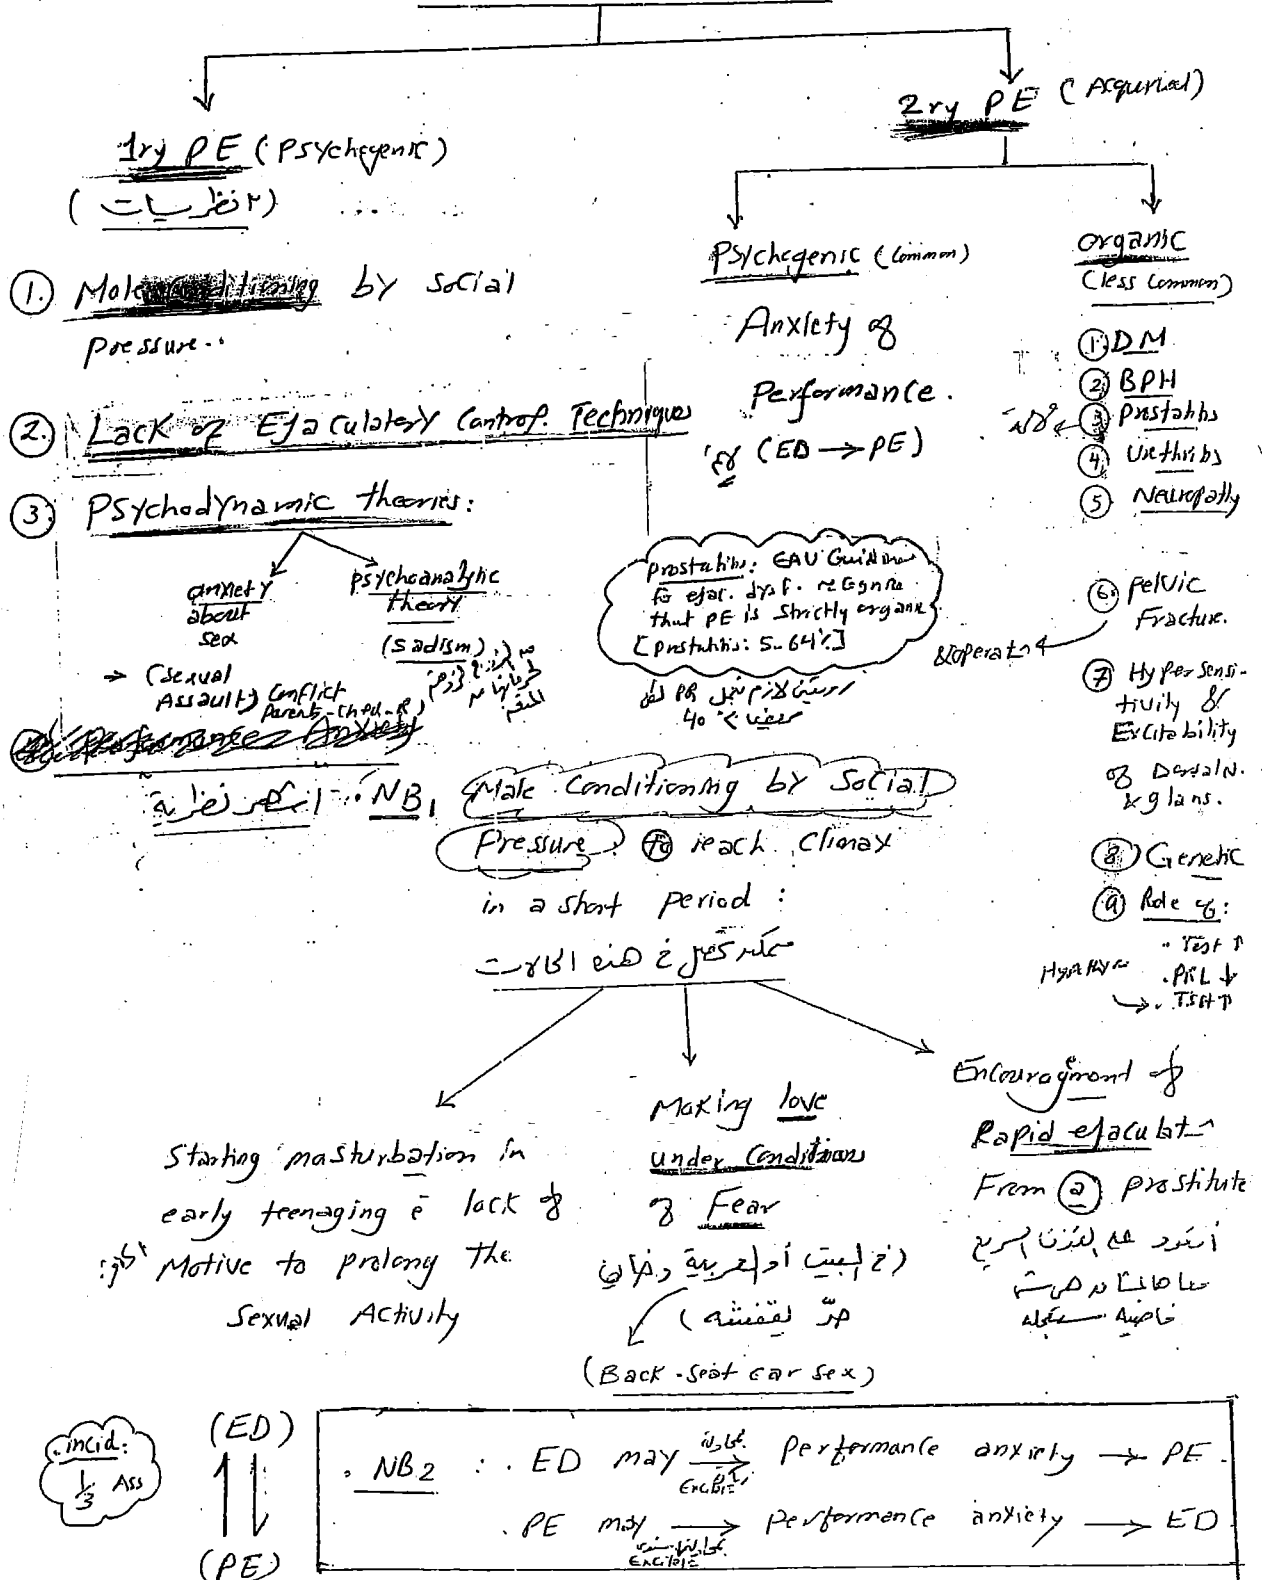 1ry PE (Psychogenic)
(٣ نظريات)
① Male conditioning by Social
pressure..
② Lack of Ejaculatory Control Techniques
③ Psychodynamic theories:
anxiety
about
sex
→ (sexual
Assault) Conflict
psychoanalytic
theory
(sadism)
Performance Anxiety
2ry PE (Acquried)
Psychogenic (Common)
Anxiety of
Performance.
(ED → PE)
organic
(less common)
① DM
② BPH
③ Prostatitis
④ Urethritis
⑤ Neuropathy
⑥ Pelvic
Fracture.
&operat
⑦ Hypersensi-
tivity &
Excitability
of Dorsal N.
& glans.
⑧ Genetic
⑨ Role of:
. Test ↑
. PRL ↓
. TSH ↑
prostatitis: EAU Guideline
for ejac. dysf. recognize
that PE is strictly organic
[prostatitis: 5-64%]
روتين لازم نعمل PR
40
أشهر نظرية .. NB1 Male Conditioning by Social
Pressure to reach Climax
in a short period :
ممكن تحصل في هذه الحالات
Starting masturbation in
early teenaging ē lack of
Motive to prolong the
Sexual Activity
Making love
under Conditions
of Fear
(في البيت أو العربية وخايف
حدّ يقفشه)
(Back-seat car sex)
Encouragment of
Rapid ejaculat
From ⓐ prostitute
اتعود على القذف السريع
مستعجلة
incid:
1/3 Ass
(ED)
↑↓
(PE)
. NB2 : . ED may → performance anxiety → PE.
. PE may → performance anxiety → ED